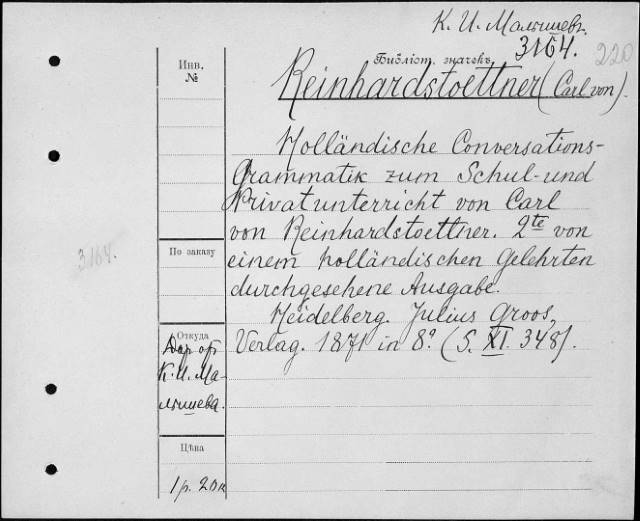 К. И. Малышев.
3164.
220
Библіот. значекъ
Reinhardstoettner (Carl von).
Инв.
№
Holländische Conversations-
Grammatik zum Schul- und
Privatunterricht von Carl
von Reinhardstoettner. 2te von
einem holländischen Gelehrten
durchgesehene Ausgabe.
Heidelberg. Julius Groos,
Verlag. 1871 in 8º. (S. XI. 348).
По заказу
3164.
Откуда
Дар от
К. И. Ма-
лышева.
Цѣна
1 р. 20 к